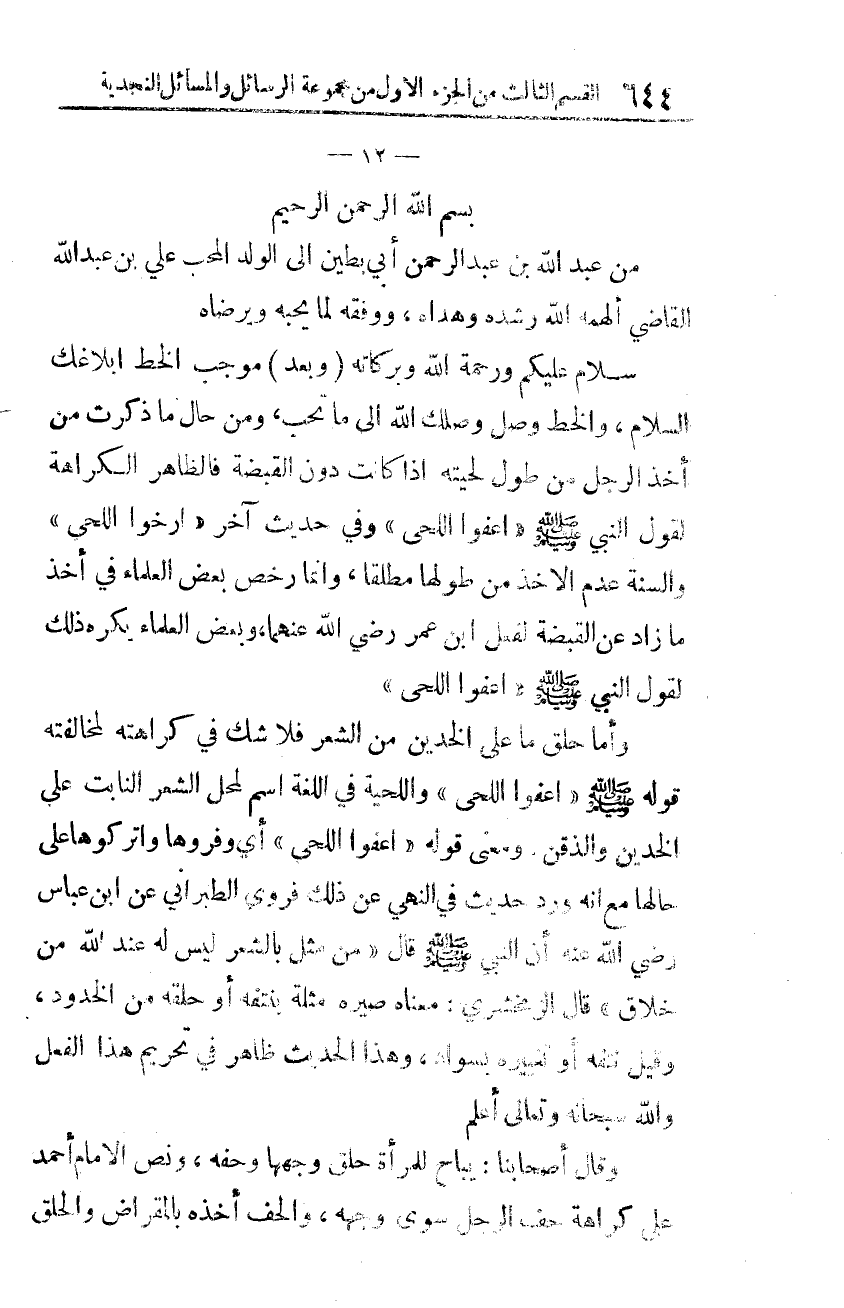 ٦٤٤ القسم الثالث من الجزء الاول من مجموعة الرسائل والمسائل النجدية
— ١٢ —
بسم الله الرحمن الرحيم
من عبد الله بن عبدالرحمن أبي بطين الى الولد المحب علي بن عبدالله
القاضي ألهمه الله رشده وهداه ، ووفقه لما يحبه ويرضاه
سلام عليكم ورحمة الله وبركاته ( وبعد ) موجب الخط ابلاغك
السلام ، والخط وصل وصلك الله الى ما تحب، ومن حال ما ذكرت من
أخذ الرجل من طول لحيته اذا كانت دون القبضة فالظاهر الكراهة
لقول النبي ﷺ « اعفوا اللحى » وفي حديث آخر « ارخوا اللحى »
والسنة عدم الاخذ من طولها مطلقا ، وانما رخص بعض العلماء في أخذ
ما زاد عن القبضة لفعل ابن عمر رضي الله عنهما، وبعض العلماء يكره ذلك
لقول النبي ﷺ « اعفوا اللحى »
وأما حلق ما على الخدين من الشعر فلا شك في كراهته لمخالفته
قوله ﷺ « اعفوا اللحى » واللحية في اللغة اسم لمحل الشعر النابت على
الخدين والذقن . ومعنى قوله « اعفوا اللحى » أي وفروها واتركوها على
حالها مع انه ورد حديث في النهي عن ذلك فروي الطبراني عن ابن عباس
رضي الله عنه أن النبي ﷺ قال « من مثل بالشعر ليس له عند الله من
خلاق » قال الزمخشري : معناه صيره مثلة بنتفه أو حلقه من الخدود ،
وقيل نتفه أو تغييره بسواد ، وهذا الحديث ظاهر في تحريم هذا الفعل
والله سبحانه وتعالى أعلم
وقال أصحابنا : يباح للمرأة حلق وجهها وحفه ، ونص الامام أحمد
على كراهة حف الرجل سوى وجهه ، والحف أخذه بالمقراض والحلق